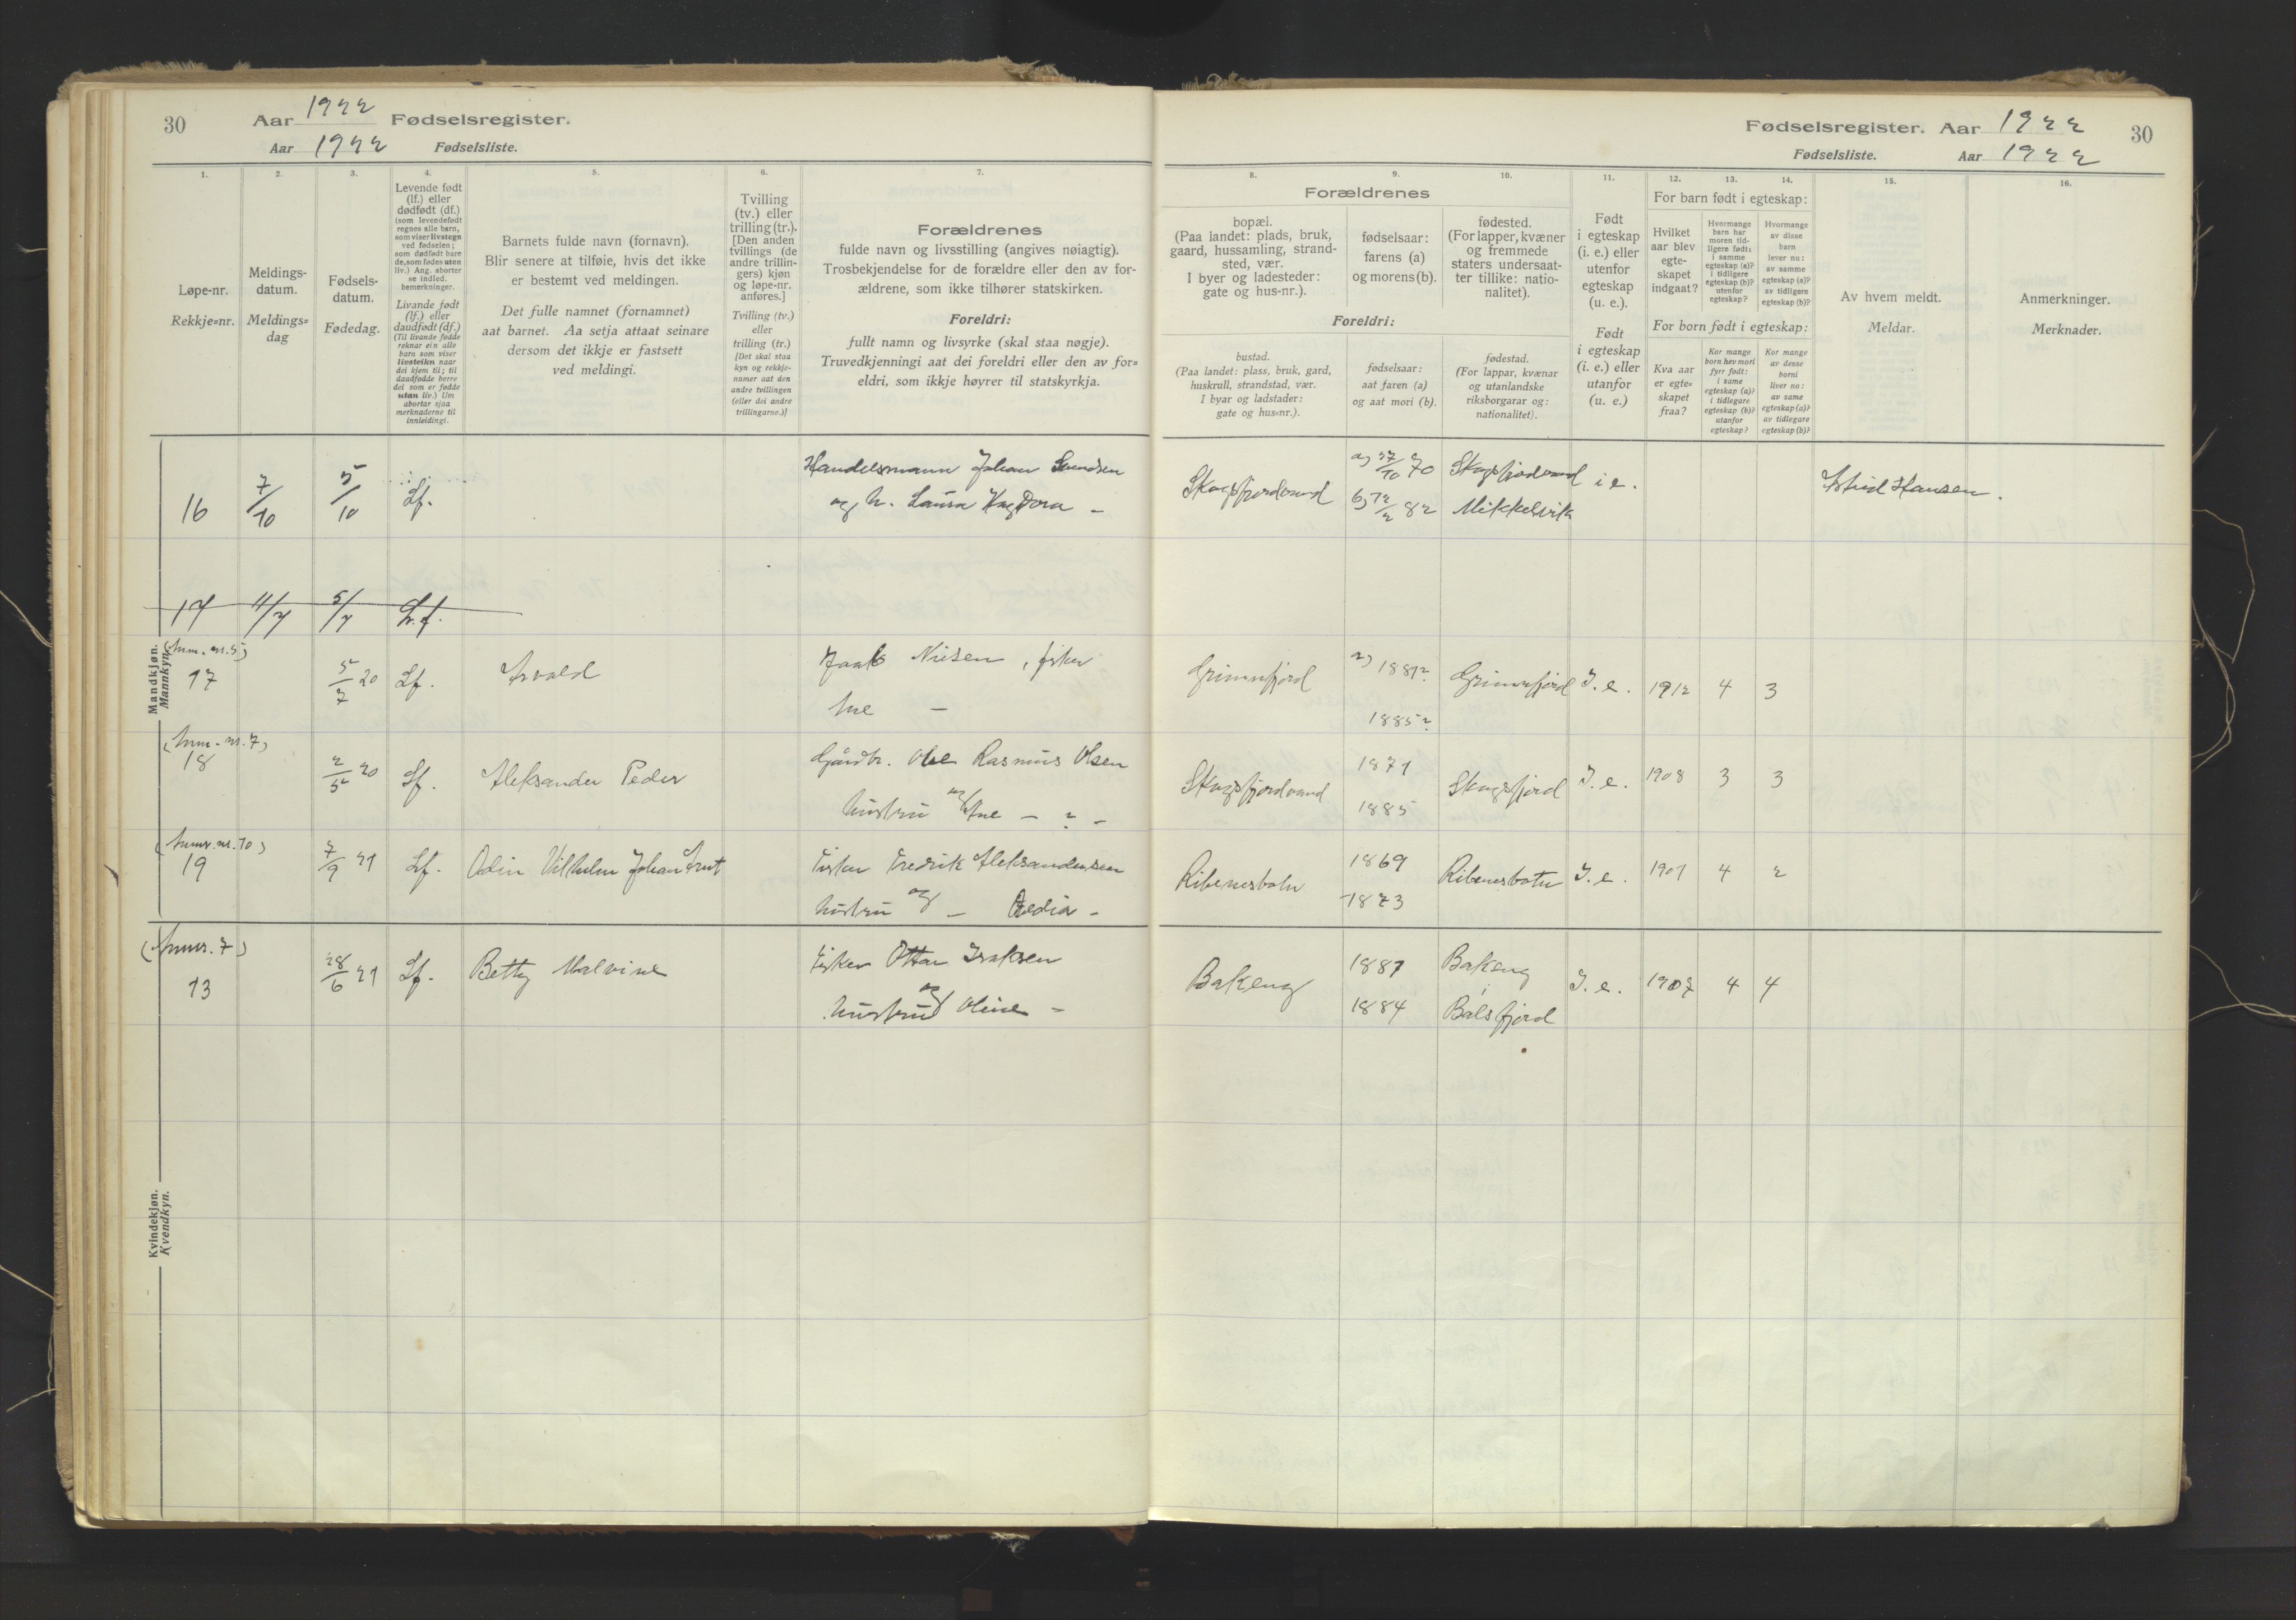 30 Aar 1922 Fødselsregister.
Aar 1922 Fødselsliste.
Fødselsregister. Aar 1922 30
Fødselsliste. Aar 1922
1. 2. 3. 4. 5. 6. 7.
Løpe-nr.
Rekkje=nr.
Meldings-
datum.
Meldings=
dag
Fødsels-
datum.
Fødedag.
Levende født
(lf.) eller
dødfødt (df.)
(som levendefødt
regnes alle barn,
som viser livstegn
ved fødselen;
som dødfødt bare
de, som fødes uten
liv.) Ang. aborter
se indled.
bemerkninger.
Livande født
(lf.) eller
daudfødt (df.)
(Til livande fødde
reknar ein alle
barn som viser
livsteikn naar
dei kjem til; til
daudfødde berre
dei som er fødde
utan liv.) Um
abortar sjaa
merknaderne til
innleidingi.
Barnets fulde navn (fornavn).
Blir senere at tilføie, hvis det ikke
er bestemt ved meldingen.
Det fulle namnet (fornamnet)
aat barnet. Aa setja attaat seinare
dersom det ikkje er fastsett
ved meldingi.
Tvilling
(tv.) eller
trilling (tr.).
[Den anden
tvillings (de
andre trillin-
gers) kjøn
og løpe-nr.
anføres.]
Tvilling (tv.)
eller
trilling (tr.)
[Det skal staa
kyn og rekkje-
numer aat den
andre tvillingen
(eller dei andre
trillingarne.)]
Forældrenes
fulde navn og livsstilling (angives nøiagtig).
Trosbekjendelse for de forældre eller den av for-
ældrene, som ikke tilhører statskirken.
Foreldri:
fullt namn og livsyrke (skal staa nøgje).
Truvedkjenningi aat dei foreldri eller den av for=
eldri, som ikkje høyrer til statskyrkja.
8. 9. 10. 11. 12. 13. 14. 15. 16.
Forældrenes
bopæl.
(Paa landet: plads, bruk,
gaard, hussamling, strand-
sted, vær.
I byer og ladesteder:
gate og hus-nr.).
fødselsaar:
farens (a)
og morens (b).
fødested.
(For lapper, kvæner
og fremmede
staters undersaat-
ter tillike: natio-
nalitet).
Foreldri:
bustad.
(Paa landet: plass, bruk, gard,
huskrull, strandstad, vær.
I byar og ladstader:
gate og hus=nr.).
fødselsaar:
aat faren (a)
og aat mori (b).
fødestad.
(For lappar, kvænar
og utanlandske
riksborgarar og:
nationalitet).
Født
i egteskap
(i. e.) eller
utenfor
egteskap
(u. e.).
Født
i egteskap
(i. e.) eller
utanfor
(u. e.)
For barn født i egteskap:
Hvilket
aar blev
egte-
skapet
indgaat?
Hvormange
barn har
moren tid-
ligere født:
i samme
egteskap (a)?
i tidligere
egteskap (b)?
utenfor
egteskap?
Hvormange
av disse
barn
lever nu:
av samme
egteskap (a)?
av tidligere
egteskap (b)?
For born født i egteskap:
Kva aar
er egte=
skapet
fraa?
Kor mange
born hev mori
fyrr født:
i same
egteskap (a)?
i tidlegare
egteskap (b)?
utanfor
egteskap?
Kor mange
av desse
borni
liver no:
av same
egteskap (a)?
av tidlegare
egteskap (b)?
Av hvem meldt.
Meldar.
Anmerkninger.
Merknader.
Mandkjøn.
Mannkyn.
16 7/10 5/10 Lf. Handelsmann Johan Skogsfjordvand a) 27/10 70 i e. Astrid Hansen.
og h. Laura b) 12/2 82 Mikkelvik
17 11/7 5/7 L.f.
(Anm. nr. 5)
17 5/7 20 Lf. Arvald fisker Grimsfjord a) 1881? Grimsfjord I. e. 1912 4 3
Ane – 1885?
(Anm. nr. 7)
18 2/5 20 Lf. Aleksander Peder Gårdbr. Ole Rasmus Olsen Skogsfjordvand 1871 Skogsfjord I. e. 1908 3 3
og hustru Ane – ? – 1885
(Anm. nr. 10)
19 7/9 21 Lf. Odin Vilhelm Johan Fisker Fredrik Aleksandersen Ribenesbotn 1869 Ribenesbotn I. e. 1901 4 2
hustru og – 1873
(Anm. 7)
13 28/6 21 Lf. Betty Malvine Fisker Ottar Isaksen Bakeng 1887 Bakeng I. e. 1907 4 4
og hustru Oline – 1884 Balsfjord
Kvindekjøn.
Kvendkyn.